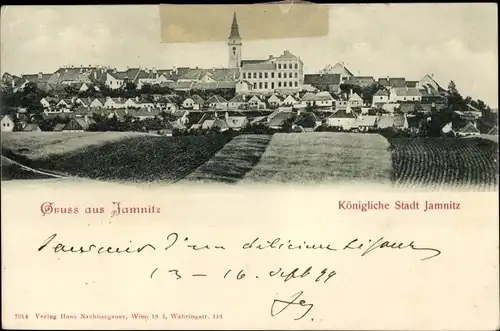 Gruss aus Jamnitz
Königliche Stadt Jamnitz
Souvenir d'un délicieux séjour
13 – 16 Sept 99
7014 Verlag Hans Nachbargauer, Wien 18 I, Währingstr. 114